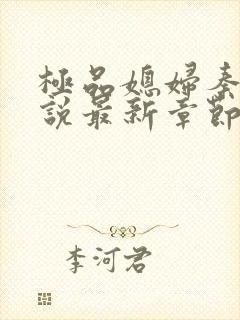 極品媳婦秦
說最新章節
李河君